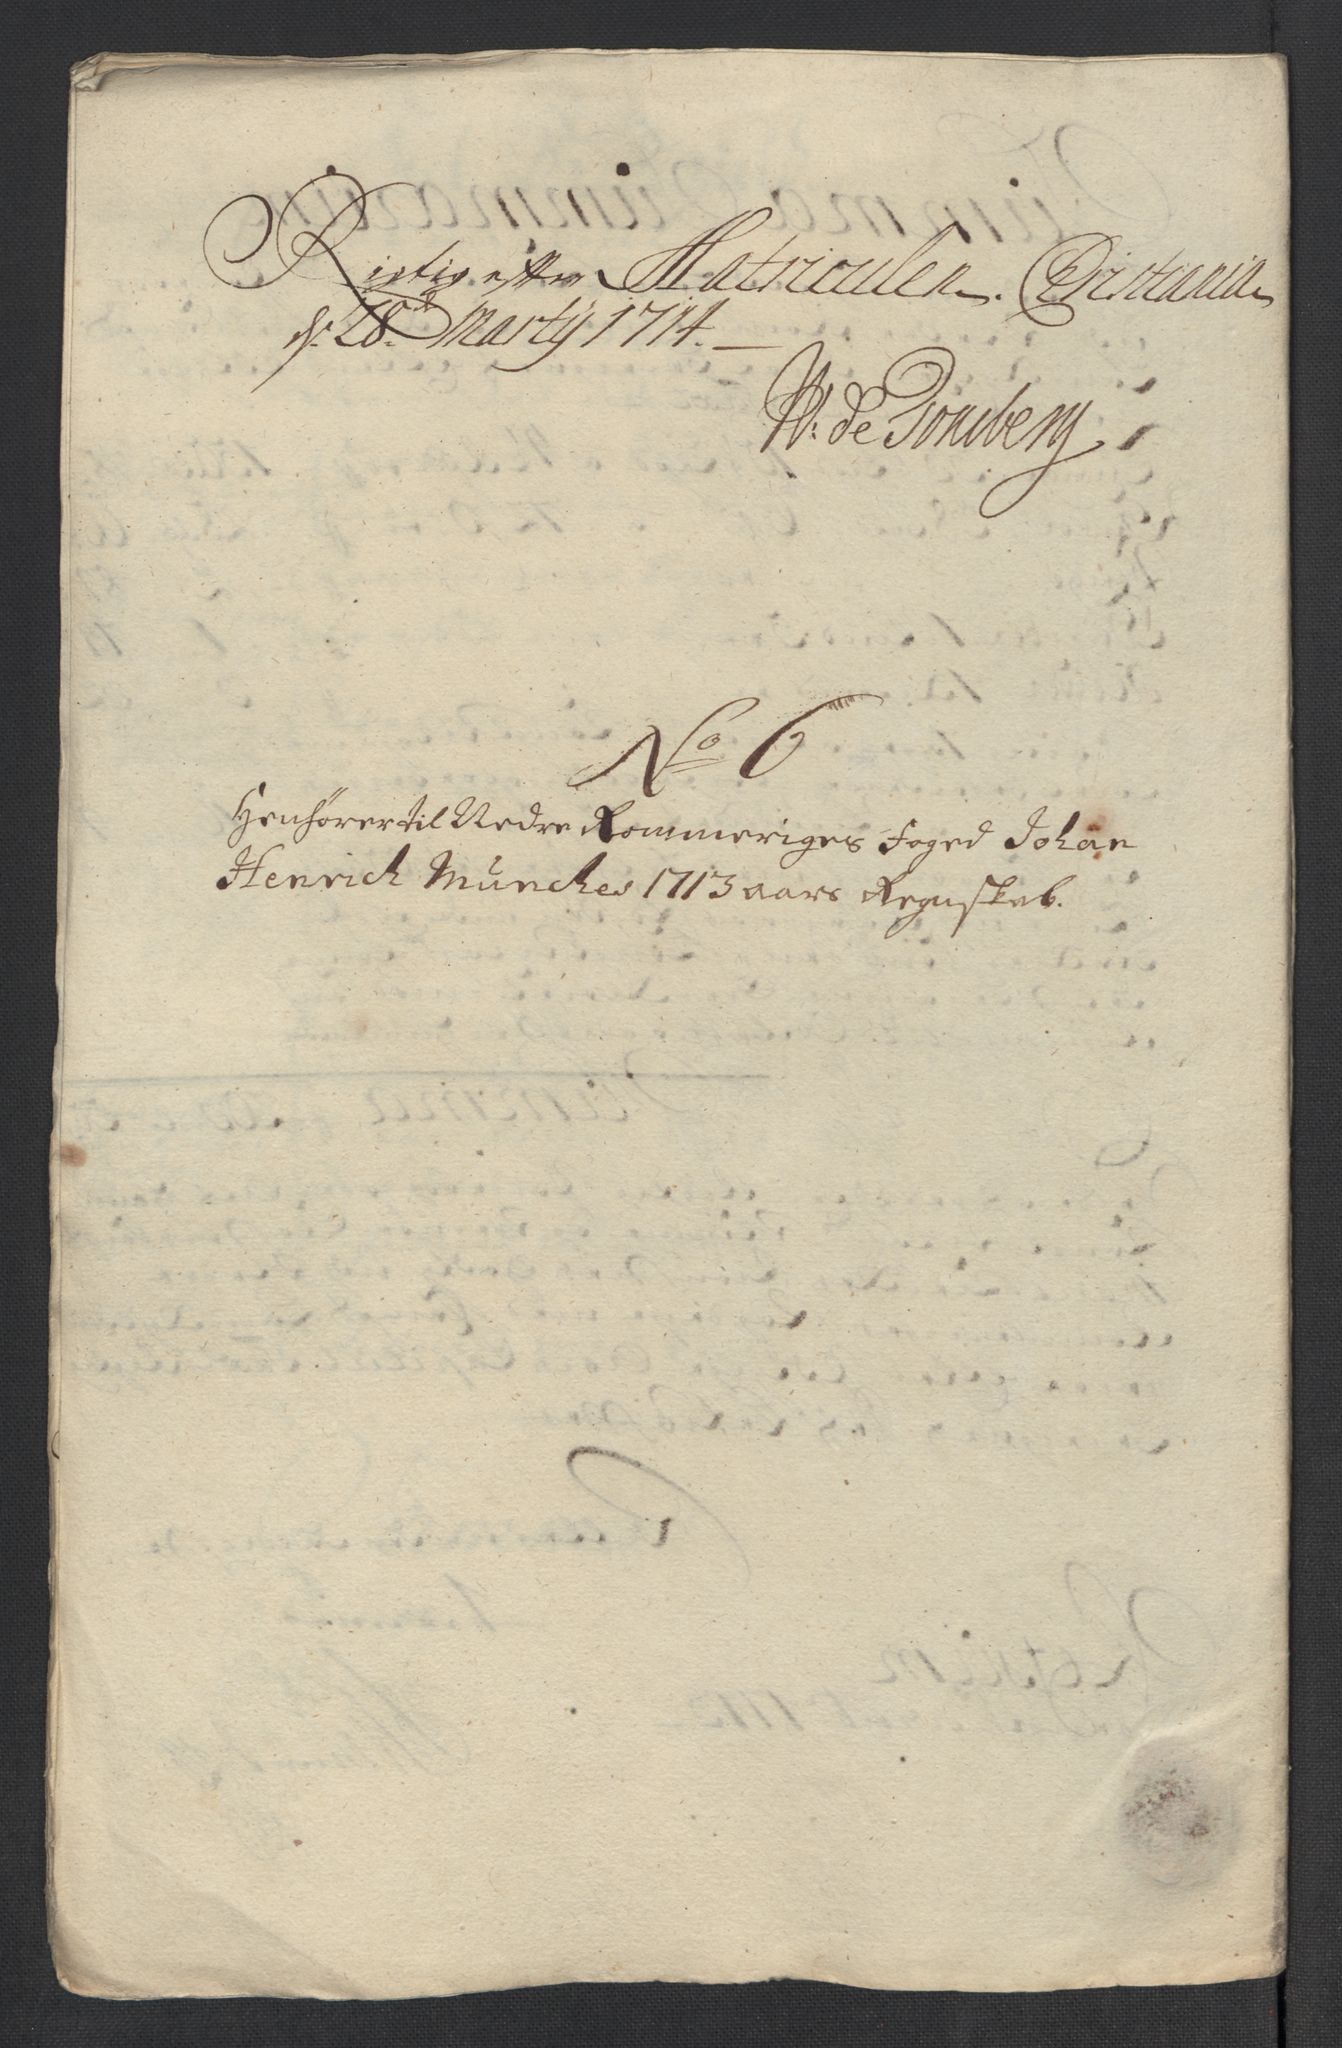 Rigtig efter Matriculen. Christania
d. 28de Martij 1714.
W: de Tonsberg
No 6
Henhörer til Nedre Rommeriges Foged Johan
Henrich Munches 1713 aars Regnskab.